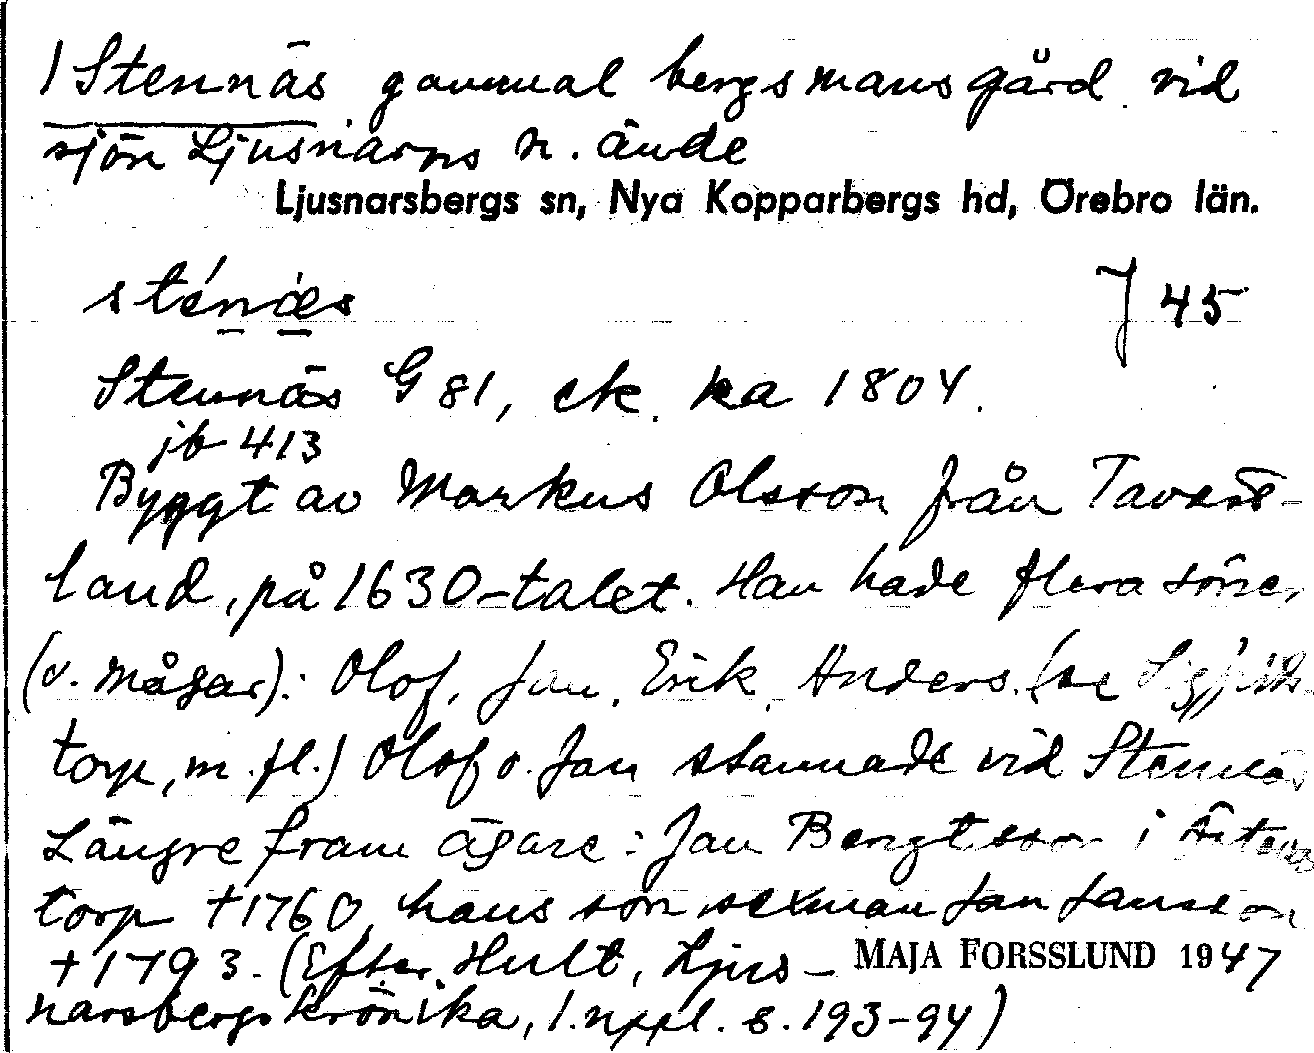 / Stennäs gammal bergsmansgård vid
sjön Ljusnarns n. ände
Ljusnarsbergs sn, Nya Kopparbergs hd, Örebro län.
sténæs J 45
Stennäs G 81, ek. ka 1804.
jb 413
Byggt av Markus Olsson från Tavast-
land, på 1630-talet. Han hade flera söner
(o. mågar): Olof, Jan, Erik, Anders (se
torp, m.fl.) Olof o. Jan stannade vid Stennäs
Längre fram ägare: Jan Bengtsson i
torp †1760, hans son sexman Jan Jansson
†1793. (Efter Hult, Ljus-
MAJA FORSSLUND 1947
narsbergskrönika, 1. uppl. s. 193-94)